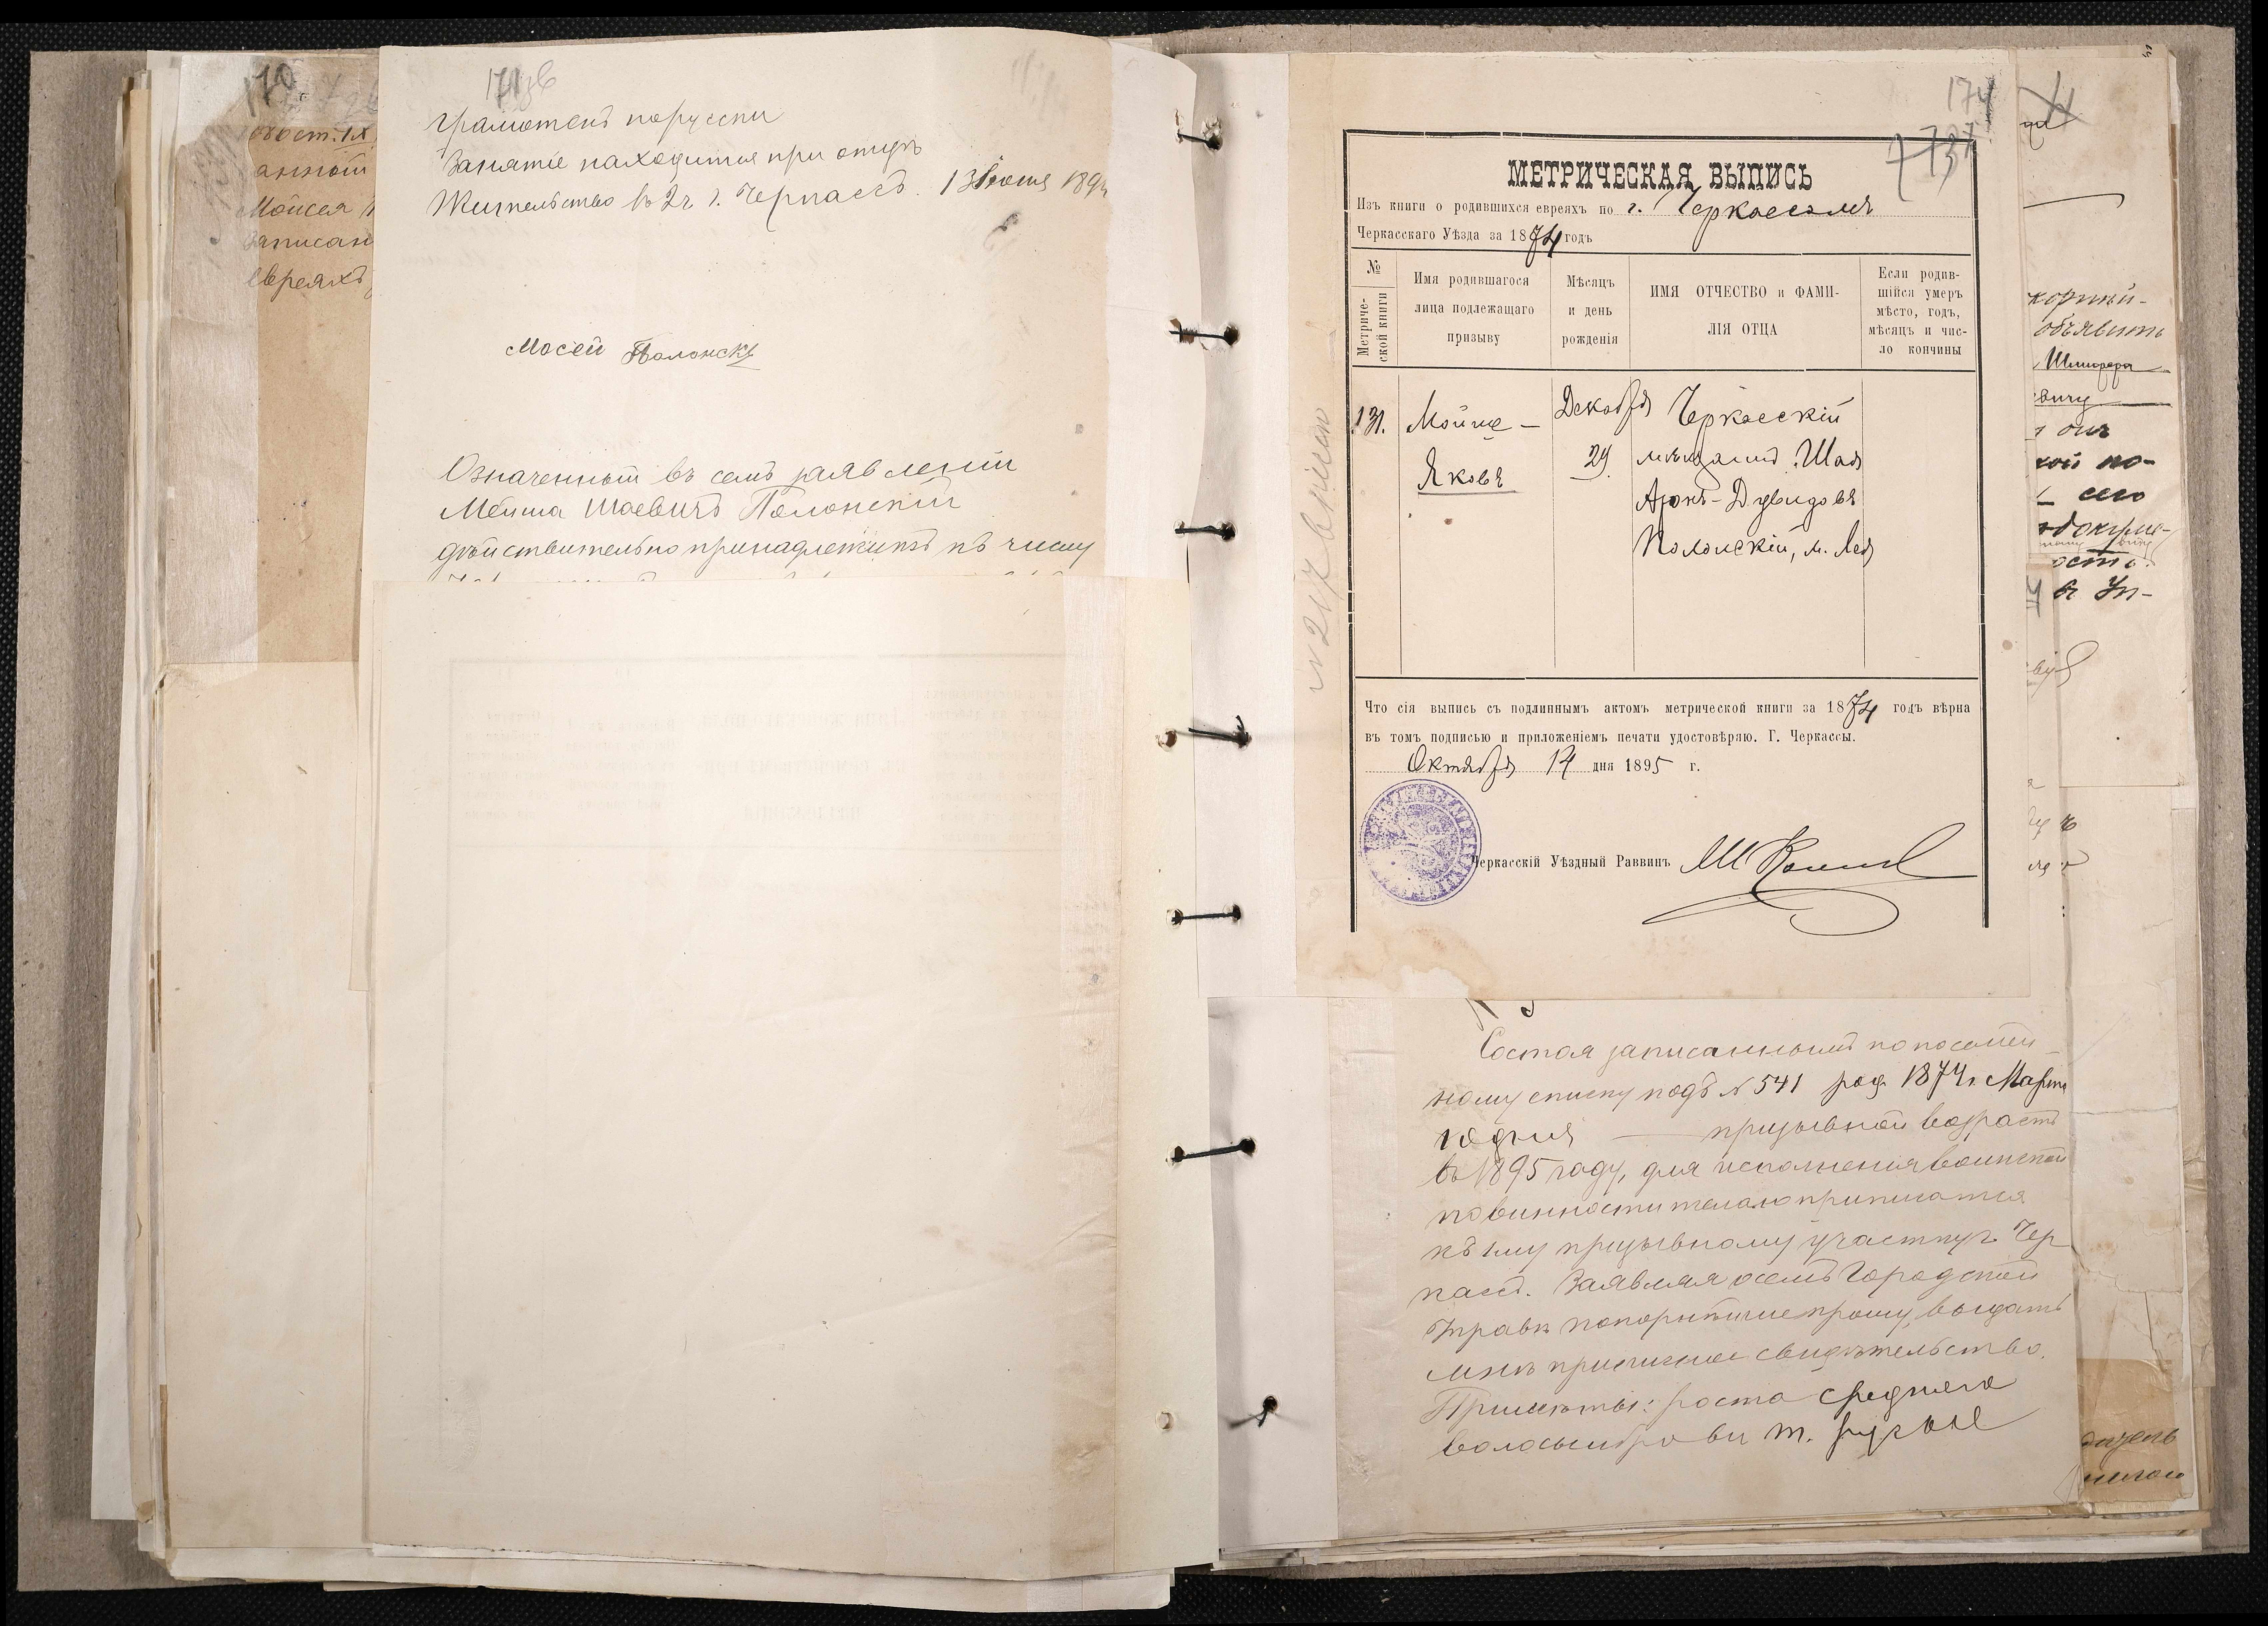 170
ост. IX
Мойсея
записан
евреяхъ
171 зв
грамотенъ порусски
Занятіе находится при отцѣ
Жительство въ 2 ч. г. Черкассъ. 13 Іюня 189
Мосей Полонскі
Означенный въ семъ заявленіи
Мойша Шаевичъ Полонскій
дѣйствительно принадлежитъ къ числу
174
МЕТРИЧЕСКАЯ ВЫПИСЬ
Изъ книги о родившихся евреяхъ по г. Черкассамъ
Черкасскаго Уѣзда за 1874 годъ
№ Метрической книги
Имя родившагося лица подлежащаго призыву
Мѣсяцъ и день рожденія
ИМЯ ОТЧЕСТВО и ФАМИЛІЯ ОТЦА
Если родившійся умеръ мѣсто, годъ, мѣсяцъ и число кончины
131. Мойше – Декабря Черкасскій
Яковъ 29 мѣщанинъ Шая
Аронъ-Дувидовъ
Полонскій, м. Лея
Что сія выпись съ подлиннымъ актомъ метрической книги за 1874 годъ вѣрна
въ томъ подписью и приложеніемъ печати удостовѣряю. Г. Черкассы.
Октября 14 дня 1895 г.
Черкасскій Уѣздный Раввинъ
Состоя записаннымъ по посемей-
ному списку подъ № 541 род. 1874 г. Марта
10 дня — призывной возрастъ
въ 1895 году, для исполненія воинской
повинности желаю приписатся
къ 1му призывному участку г. Чер
кассъ. Заявляя о семъ Городской
Управѣ покорнѣйше прошу, выдать
мнѣ приписное свидѣтельство.
Примѣты: роста средняго
волосы и брови т. русые
корнѣй-
объявить
Шлиофера
евичу
кой по-
сего
ость